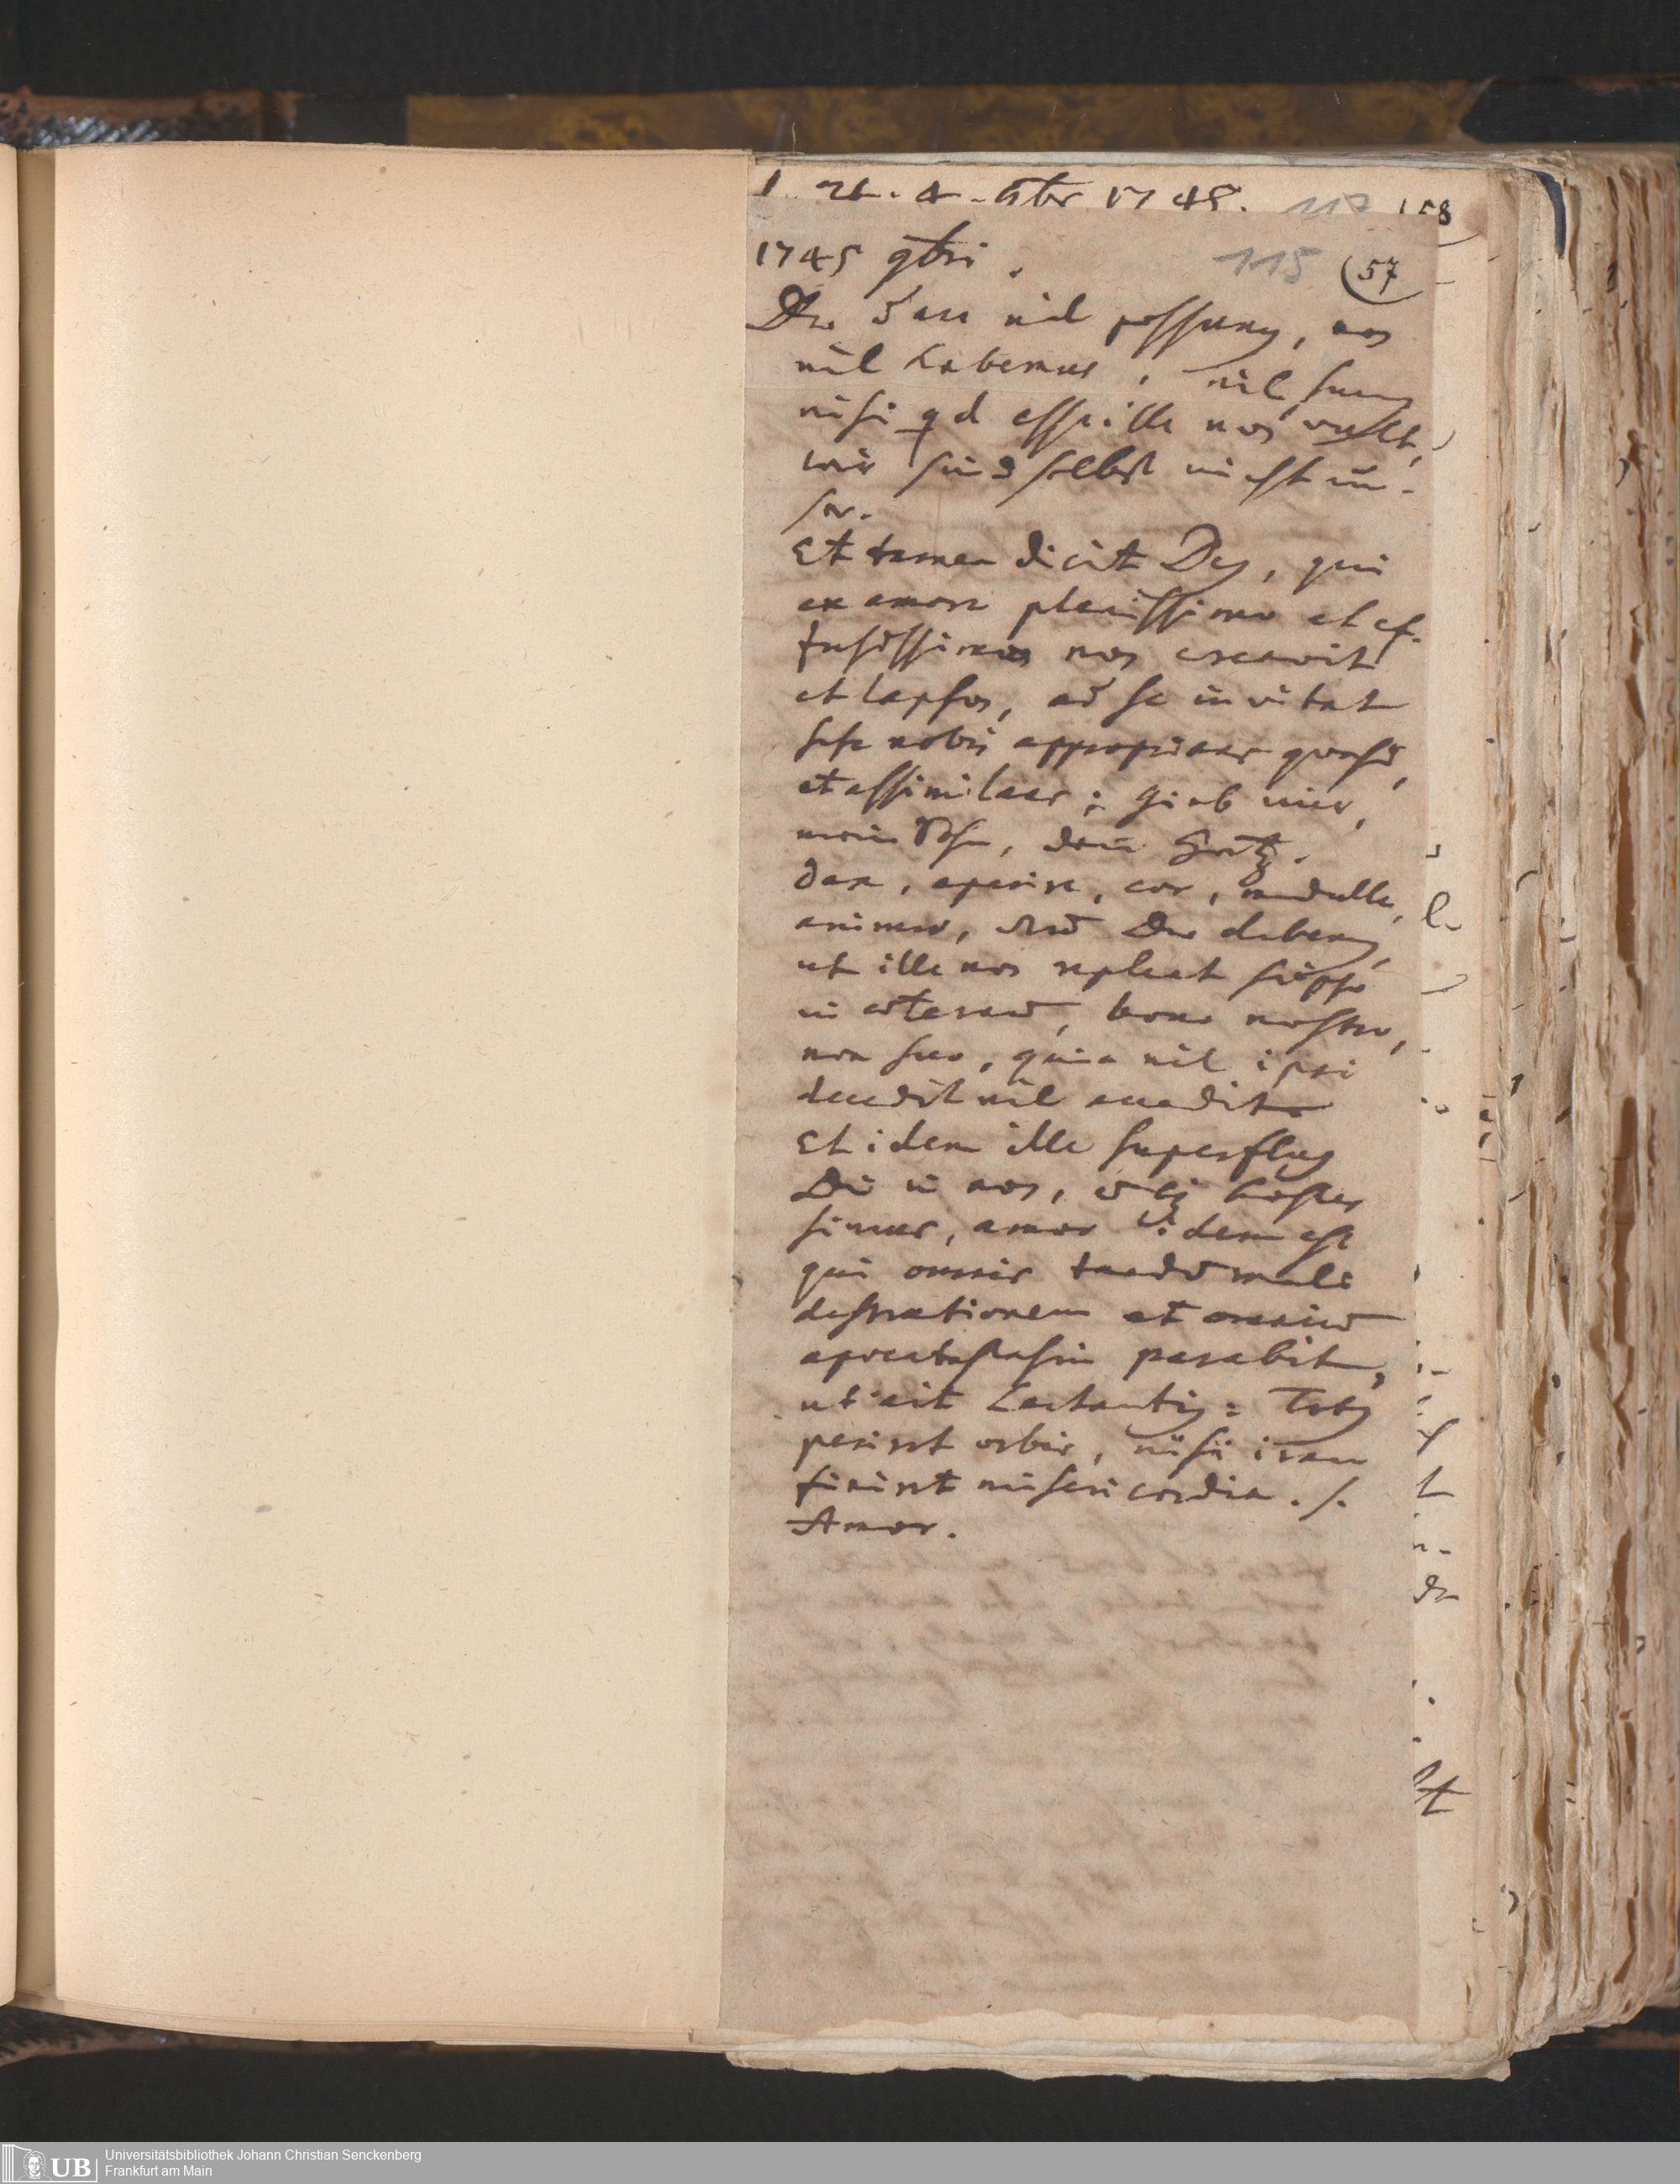 1. 21. 4. 9br 1745. 117 158
1745 9bri. 115 (57
Deo dare nil possumus, nos
nil habemus, nil sumus
nisi qd esse ille nos vult,
wir sind selbst nicht un-
ser.
Et tamen dicit Deus, qui
ex amore plenissimo et ef-
fusissimo nos creavit
et lapsos, ad se invitat
sese nobis appropriare
et assimilare: Gieb mir,
mein Sohn, dein Hertz.
dare, aperire, cor, medulla,
Deo debemus,
ut ille nos repleat seipso
in aeternum, bono nostro,
non suo, quia nil ipsi
decedit nil accedit
Et idem ille superfluus
Dei in nos, hostes
simus, amor idem est
qui omnis tandem mali
destructionem et omnium
apocatastasin parabit,
ut ait Lactantius: Totus
periret orbis, nisi iram
finiret misericordia. s.
Amor.
Universitätsbibliothek Johann Christian Senckenberg
Frankfurt am Main
UB